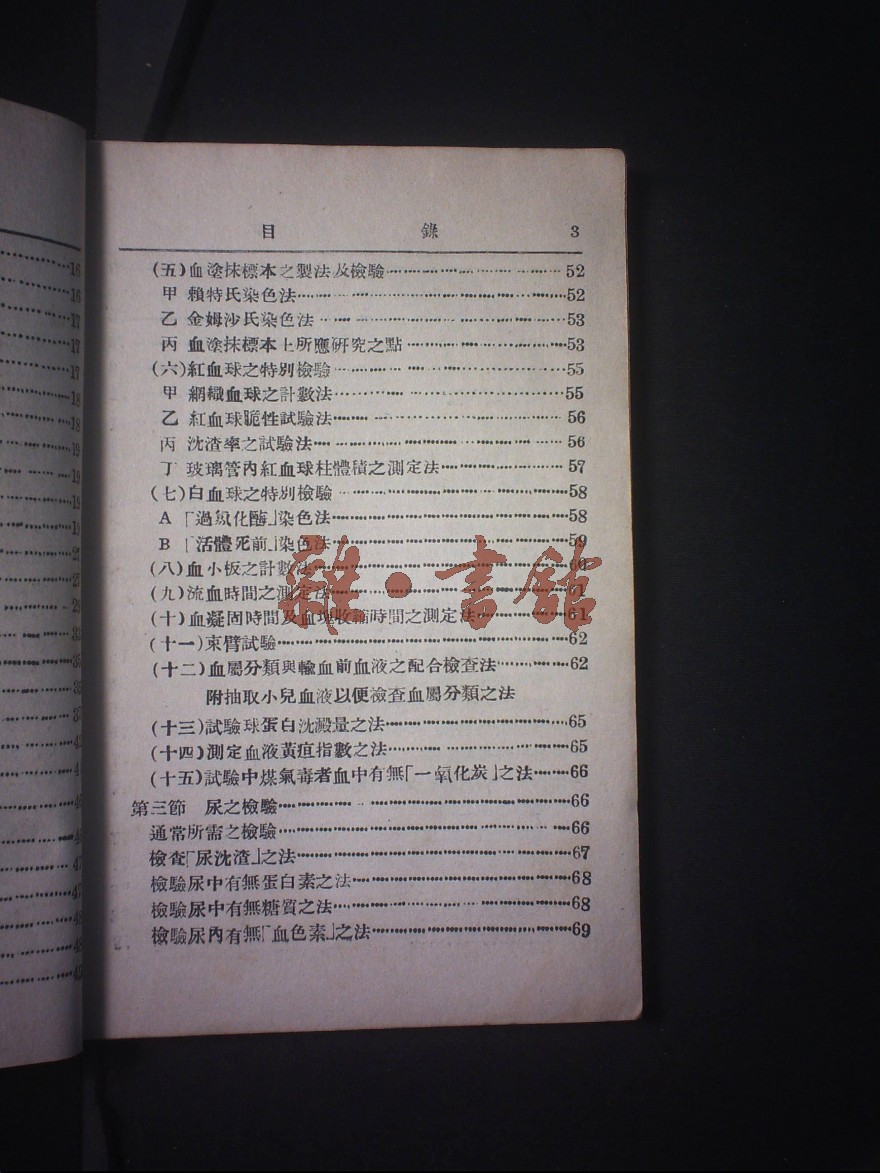 目錄 3
(五)血塗抹標本之製法及檢驗 52
甲 賴特氏染色法 52
乙 金姆沙氏染色法 53
丙 血塗抹標本上所應研究之點 53
(六)紅血球之特別檢驗 55
甲 網織血球之計數法 55
乙 紅血球脆性試驗法 56
丙 沈渣率之試驗法 56
丁 玻璃管內紅血球柱體積之測定法 57
(七)白血球之特別檢驗 58
A 「過氧化酶」染色法 58
B 「活體死前」染色法 59
(八)血小板之計數法 60
(九)流血時間之測定法 61
(十)血凝固時間及血塊收縮時間之測定法 61
(十一)束臂試驗 62
(十二)血屬分類與輸血前血液之配合檢查法 62
附抽取小兒血液以便檢查血屬分類之法
(十三)試驗球蛋白沈澱量之法 65
(十四)測定血液黃疸指數之法 65
(十五)試驗中煤氣毒者血中有無「一氧化炭」之法 66
第三節 尿之檢驗 66
通常所需之檢驗 66
檢查「尿沈渣」之法 67
檢驗尿中有無蛋白素之法 68
檢驗尿中有無糖質之法 68
檢驗尿內有無「血色素」之法 69
雜·書館